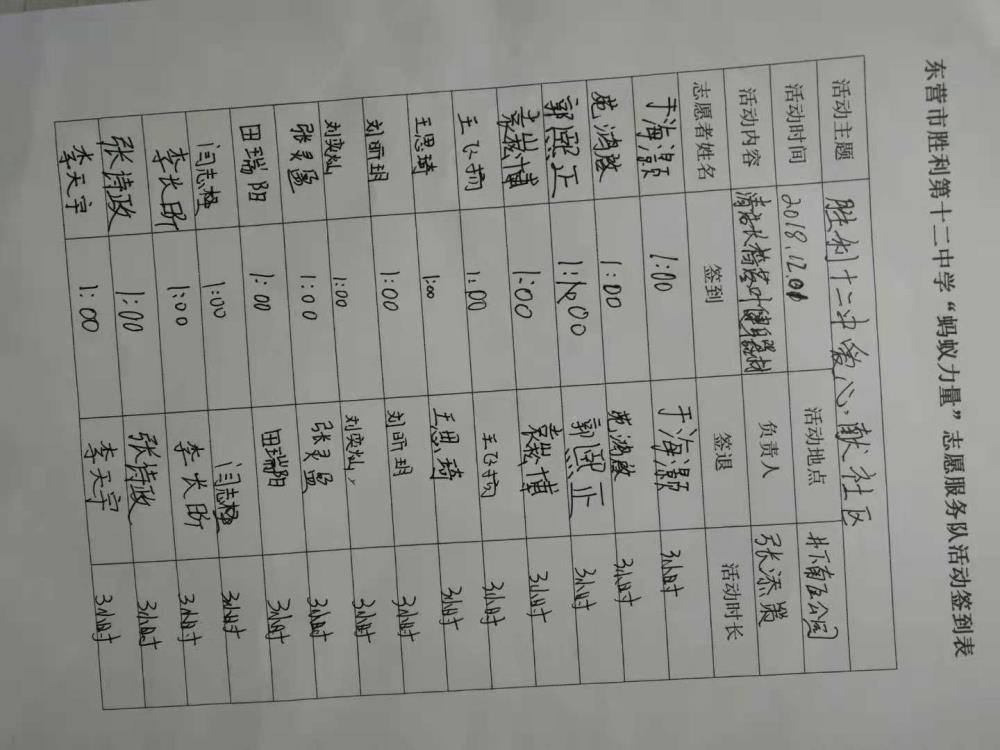 东营市胜利第十二中学“蚂蚁力量”志愿服务队活动签到表
活动主题 胜利十二中爱心献社区
活动时间 2018.12.01 活动地点 井下南区公园
活动内容 清扫长椅落叶健身器材 负责人 张添翼
志愿者姓名 签到 签退 活动时长
于海灏 1:00 于海灏 3小时
1:00 3小时
郭熙正 1:00 郭熙正 3小时
袁崧博 1:00 袁崧博 3小时
王飞扬 1:00 王飞扬 3小时
王思琦 1:00 王思琦 3小时
刘昕玥 1:00 刘昕玥 3小时
刘奕灿 1:00 刘奕灿 3小时
张灵盈 1:00 张灵盈 3小时
田瑞阳 1:00 田瑞阳 3小时
闫志极 1:00 闫志极 3小时
李长昕 1:00 李长昕 3小时
张诗政 1:00 张诗政 3小时
李天宇 1:00 李天宇 3小时